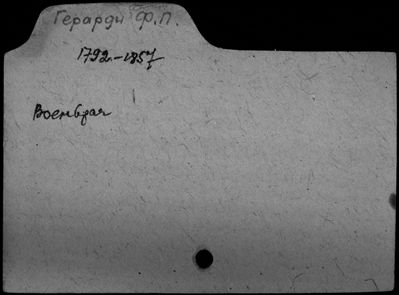 Герарди Ф.П.
1792–1857
Военврач